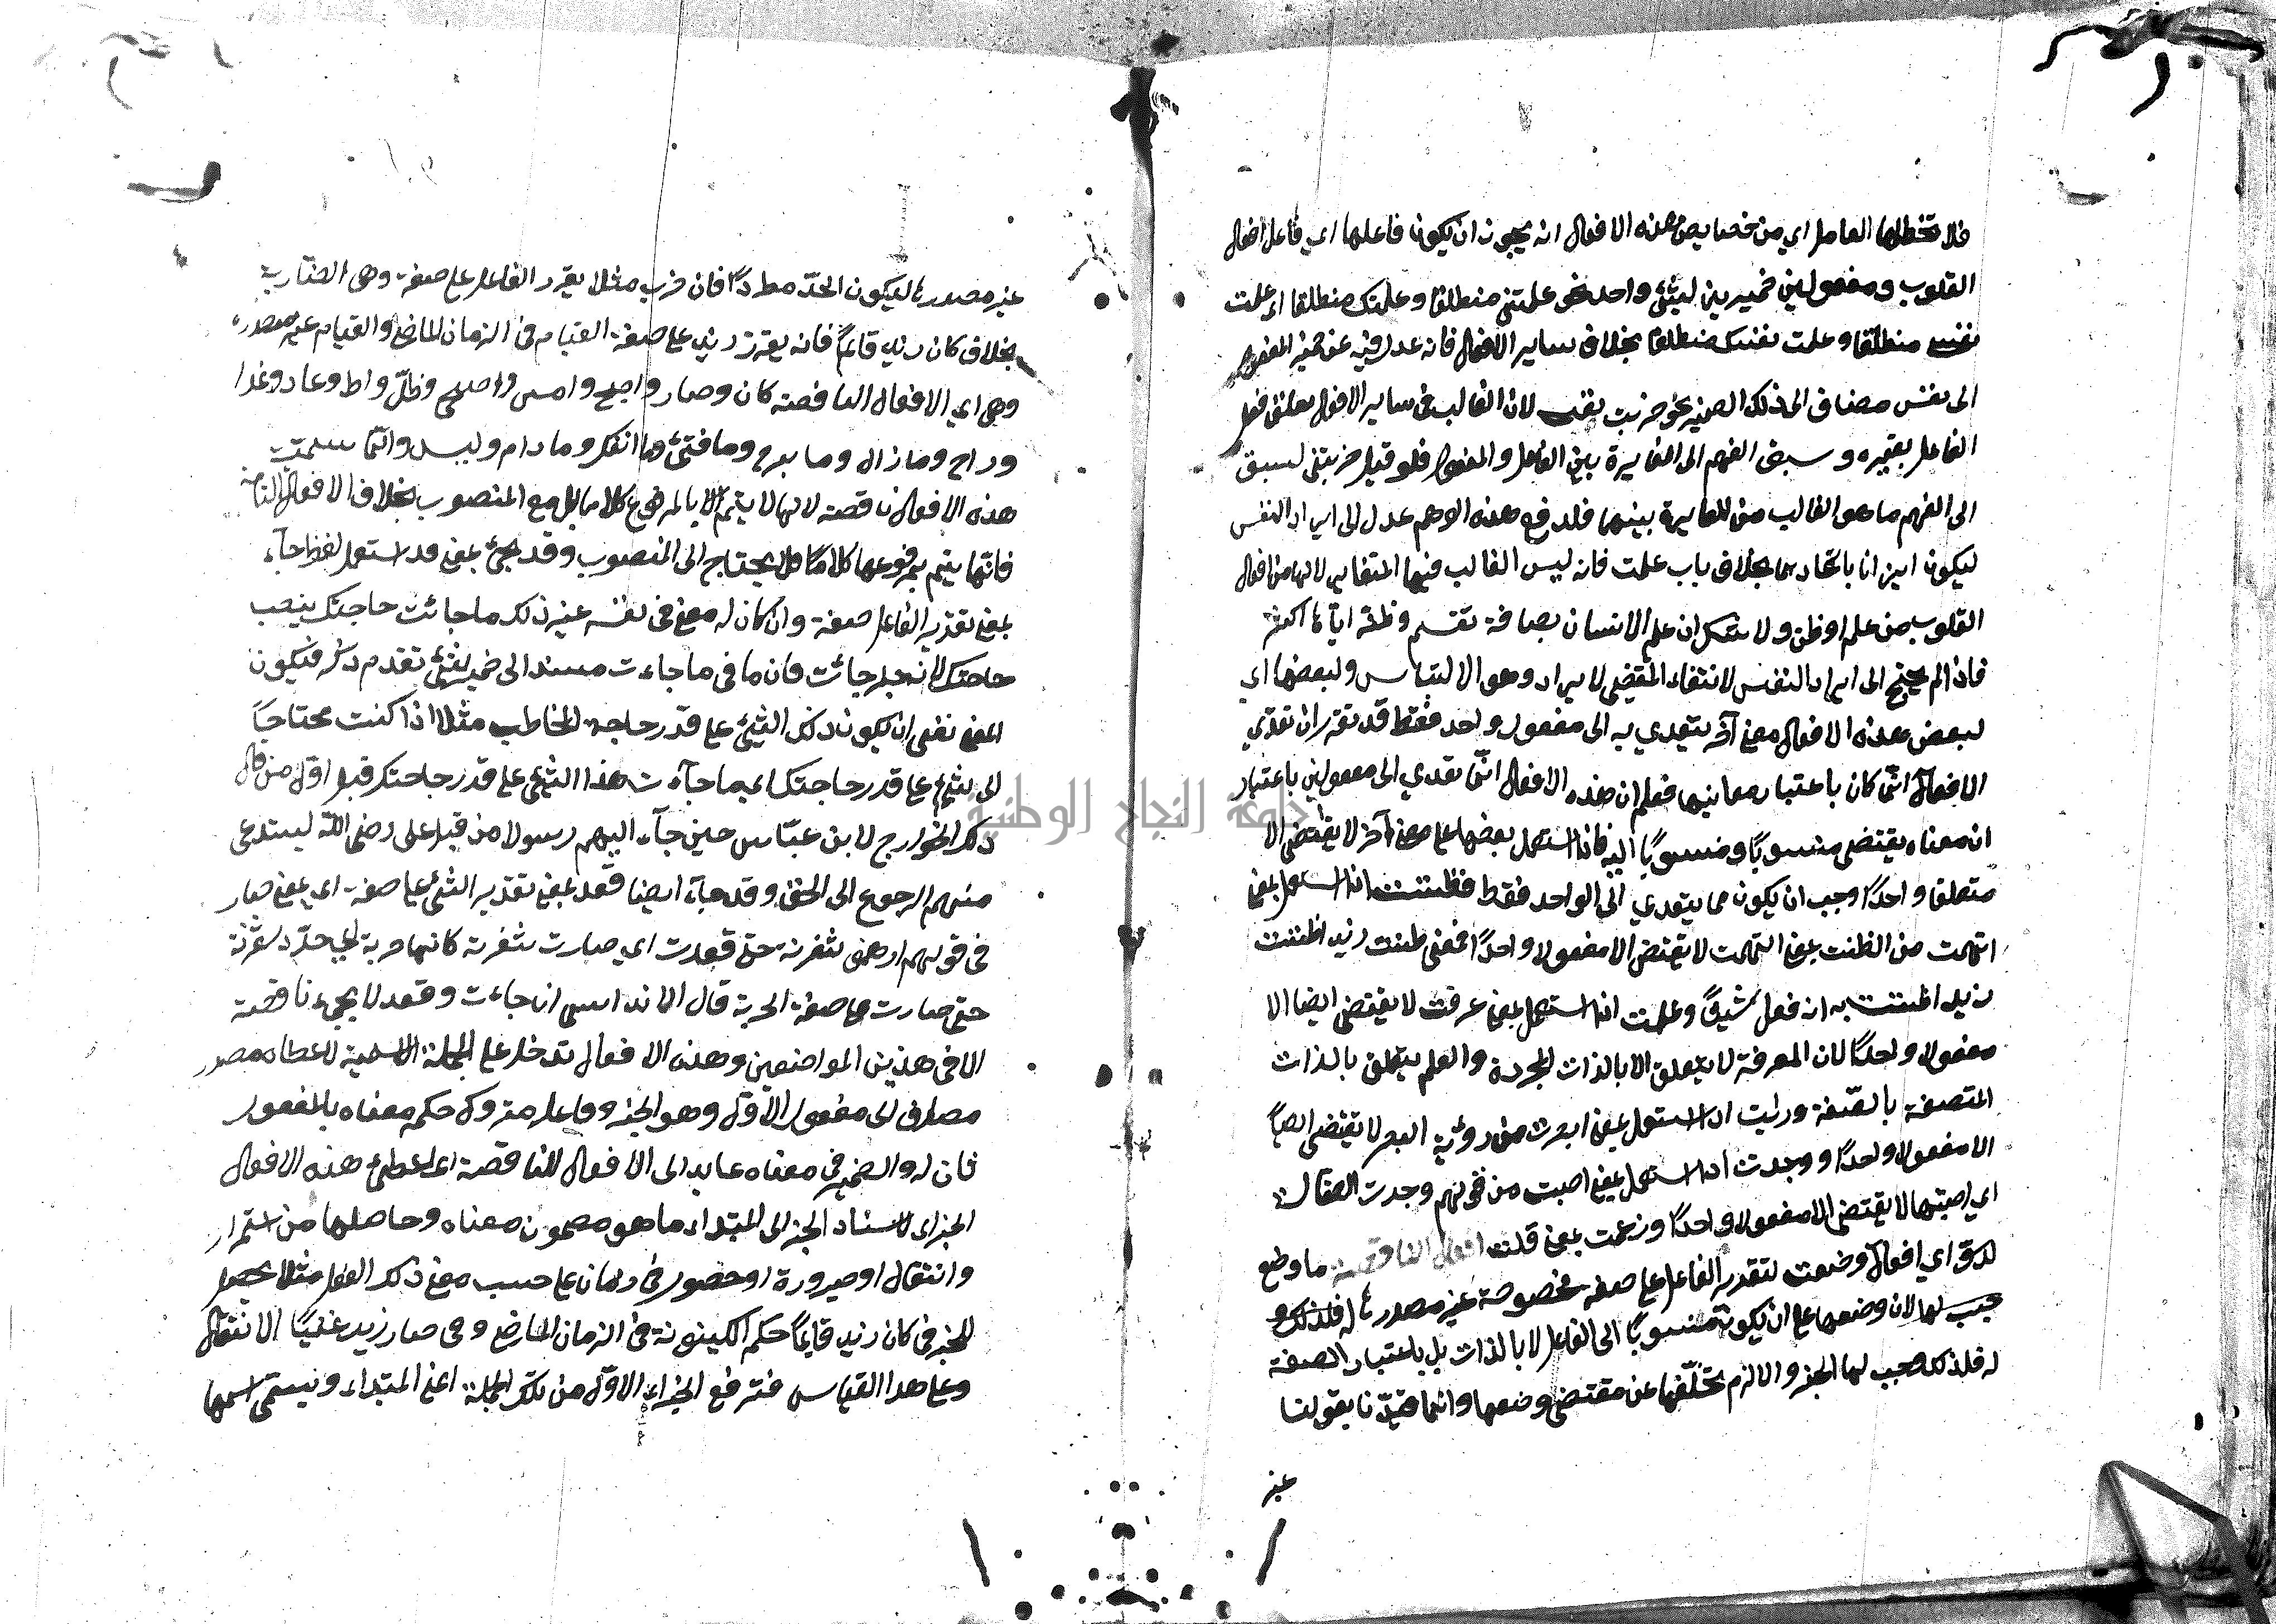 فلا تخطلها العامل اي من خصايص هذه الافعال انه يجوز ان يكون فاعلها اي فاعل افعال
القلوب ومفعولين ضميرين لشئ واحد نحو علمتني منطلقا وعلمتك منطلقا اي علمت
نفسي منطلقا وعلمت نفسك منطلقا بخلاف ساير الافعال فانه عدل فيه عن ضمير المفعول
الى نفس مضاف الى ذلك الضمير نحو ضربت نفسي لان الغالب في ساير الافعال تعلق فعل
الفاعل بغيره وسبق الفهم الى المغايرة بين الفاعل والمفعول فلو قيل ضربتني لسبق
الى الفهم ما هو الغالب من المغايرة بينهما فلدفع هذه الوهم عدل الى ايراد النفس
ليكون ايزانا باتحادهما بخلاف باب علمت فانه ليس الغالب فيها المتغاير لانها من افعال
القلوب من علم او ظن ولا شكل ان علم الانسان بصافة نفسه وظنه اياها اكثر
فاذا لم يحتج الى ايراد النفس لانتفاء المقتضي لايراد وهو الالتباس ولبعضها اي
لبعض هذه الافعال معنى آخر يتعدي به الى مفعول واحد فقط قد تقرر ان تعدّي
الافعال انّما كان باعتبار معانيها فعلم ان هذه الافعال انّما تعدي الى مفعولين باعتبار
ان معناه يقتضي منسوبًا ومنسوبًا اليه فاذا استعمل بعضها على معنى آخر لا يقتضي الا
متعلقا واحدًا وجب ان يكون مما يتعدي الى الواحد فقط فظننت اذا استعمل بمعنى
اتهمت من الظنت بمعنى التهمت لا يقتضي الا مفعولا واحدًا فمعنى ظننت زيد اظننت
زيد اظننت به انه فعل شيئًا وعلمت اذا استعمل بمعنى عرفت لا يقتضي ايضا الا
مفعولا واحدًا لان المعرفة لا يتعلق الا بالذات المجردة والعلم يتعلق بالذات
المتصفة بالصّفة ورايت اذا استعمل بمعنى ابصرت من روئية البصر لا يقتضي ايضاً
الا مفعولا واحدًا ووجدت اذا استعمل بمعنى اصبت من قولهم وجدت الضالة
اي اصبتها لا يقتضي الا مفعولا واحدًا وزعمت بمعنى قلت افعال الناقصة ما وضع
لدق اي افعال وضعت لتقدير الفاعل على صفة مخصوصة غير مصدرها له فلذلك و
جيب لها لان وضعها على ان يكون منسوبًا الى الفاعل لا بالذات بل باعتبار الصفة
له فلذلك وجب لها الجز والا لزم تخلّفها عن مقتضى وضعها وانما قيدّنا بقولنا
غير
غير مصدرها ليكون الحدّ مطردًا فان ضرب مثلا يقرر الفاعل على صفة وهي الضاربية
بخلاف كان زيد قايمًا فانه يقرر زيد على صفة القيام في الزمان الماضي والقيام غير مصدره
وهي اي الافعال الناقصة كان وصار واصبح وامسى واضحى وظلّ وبات وعاد وغدا
وراح وما زال وما برح وما فتئ وما انفك وما دام وليس وانّما سميت
هذه الافعال ناقصة لانها لا يتم الا بالمرفوع كلاما بل مع المنصوب بخلاف الافعال التامة
فانّها يتم بمرفوعها كلامًا بل يحتاج الى المنصوب وقد يجئ بمعنى قد استعمل لفظ جآء
بمعنى تقدير الفاعل صفة وان كان له معنى في نفسه غير ذلك ما جائت حاجتك بنصب
حاجتك لانه خبر جائت فان ما في ما جاءت مسند الى ضمير لشئ تقدم ذكره فيكون
المعنى نفى ان يكون ذلك الشئ على قدر حاجة المخاطب مثلا اذا كنت محتاجًا
الى شئ على قدر حاجتك اي ما جآءت هذا الشئ على قدر حاجتك قيل اوّل من قال
ذلك الخوارج لابن عبّاس حين جآء اليهم رسولا من قبل على رضي اللّه ليستدعى
منهم الرجوع الى الحق وقد جآء ايضا قعد بمعنى تقدير الشئ على صفة اي بمعنى صار
في قولهم ارهف شفرته حتى قعدت اي صارت شفرته كانها حربة اي حدّد شفرته
حتى صارت على صفة الحربة قال الاندلسي ان جاءت وقعد لا يجئ ناقصة
الا في هذين المواضعين وهذه الافعال تدخل على الجملة الاسمية لاعطاء مصدر
مضاف الى مفعول الاوّل وهو الجز وفاعله متروك حكم معناه بالمفعول
ثان له والضمير في معناه عايد الى الافعال الناقصة اي اعطى هذه الافعال
الجز اي لاسناد الجز الى المبتداء ما هو مضمون معناه وحاصلها من استمرار
وانتقال او صيرورة او حصول في زمان على حسب معنى ذلك الفعل مثلا يحصل
للجز في كان زيد قايمًا حكم الكينونة في الزمان الماضي وفي صار زيد غنيًا الانتقال
وعلى هذا القياس فترفع الجزء الاوّل من تلك الجملة اعني المبتداء ويسمّى اسمها
جامعة النجاح الوطنية